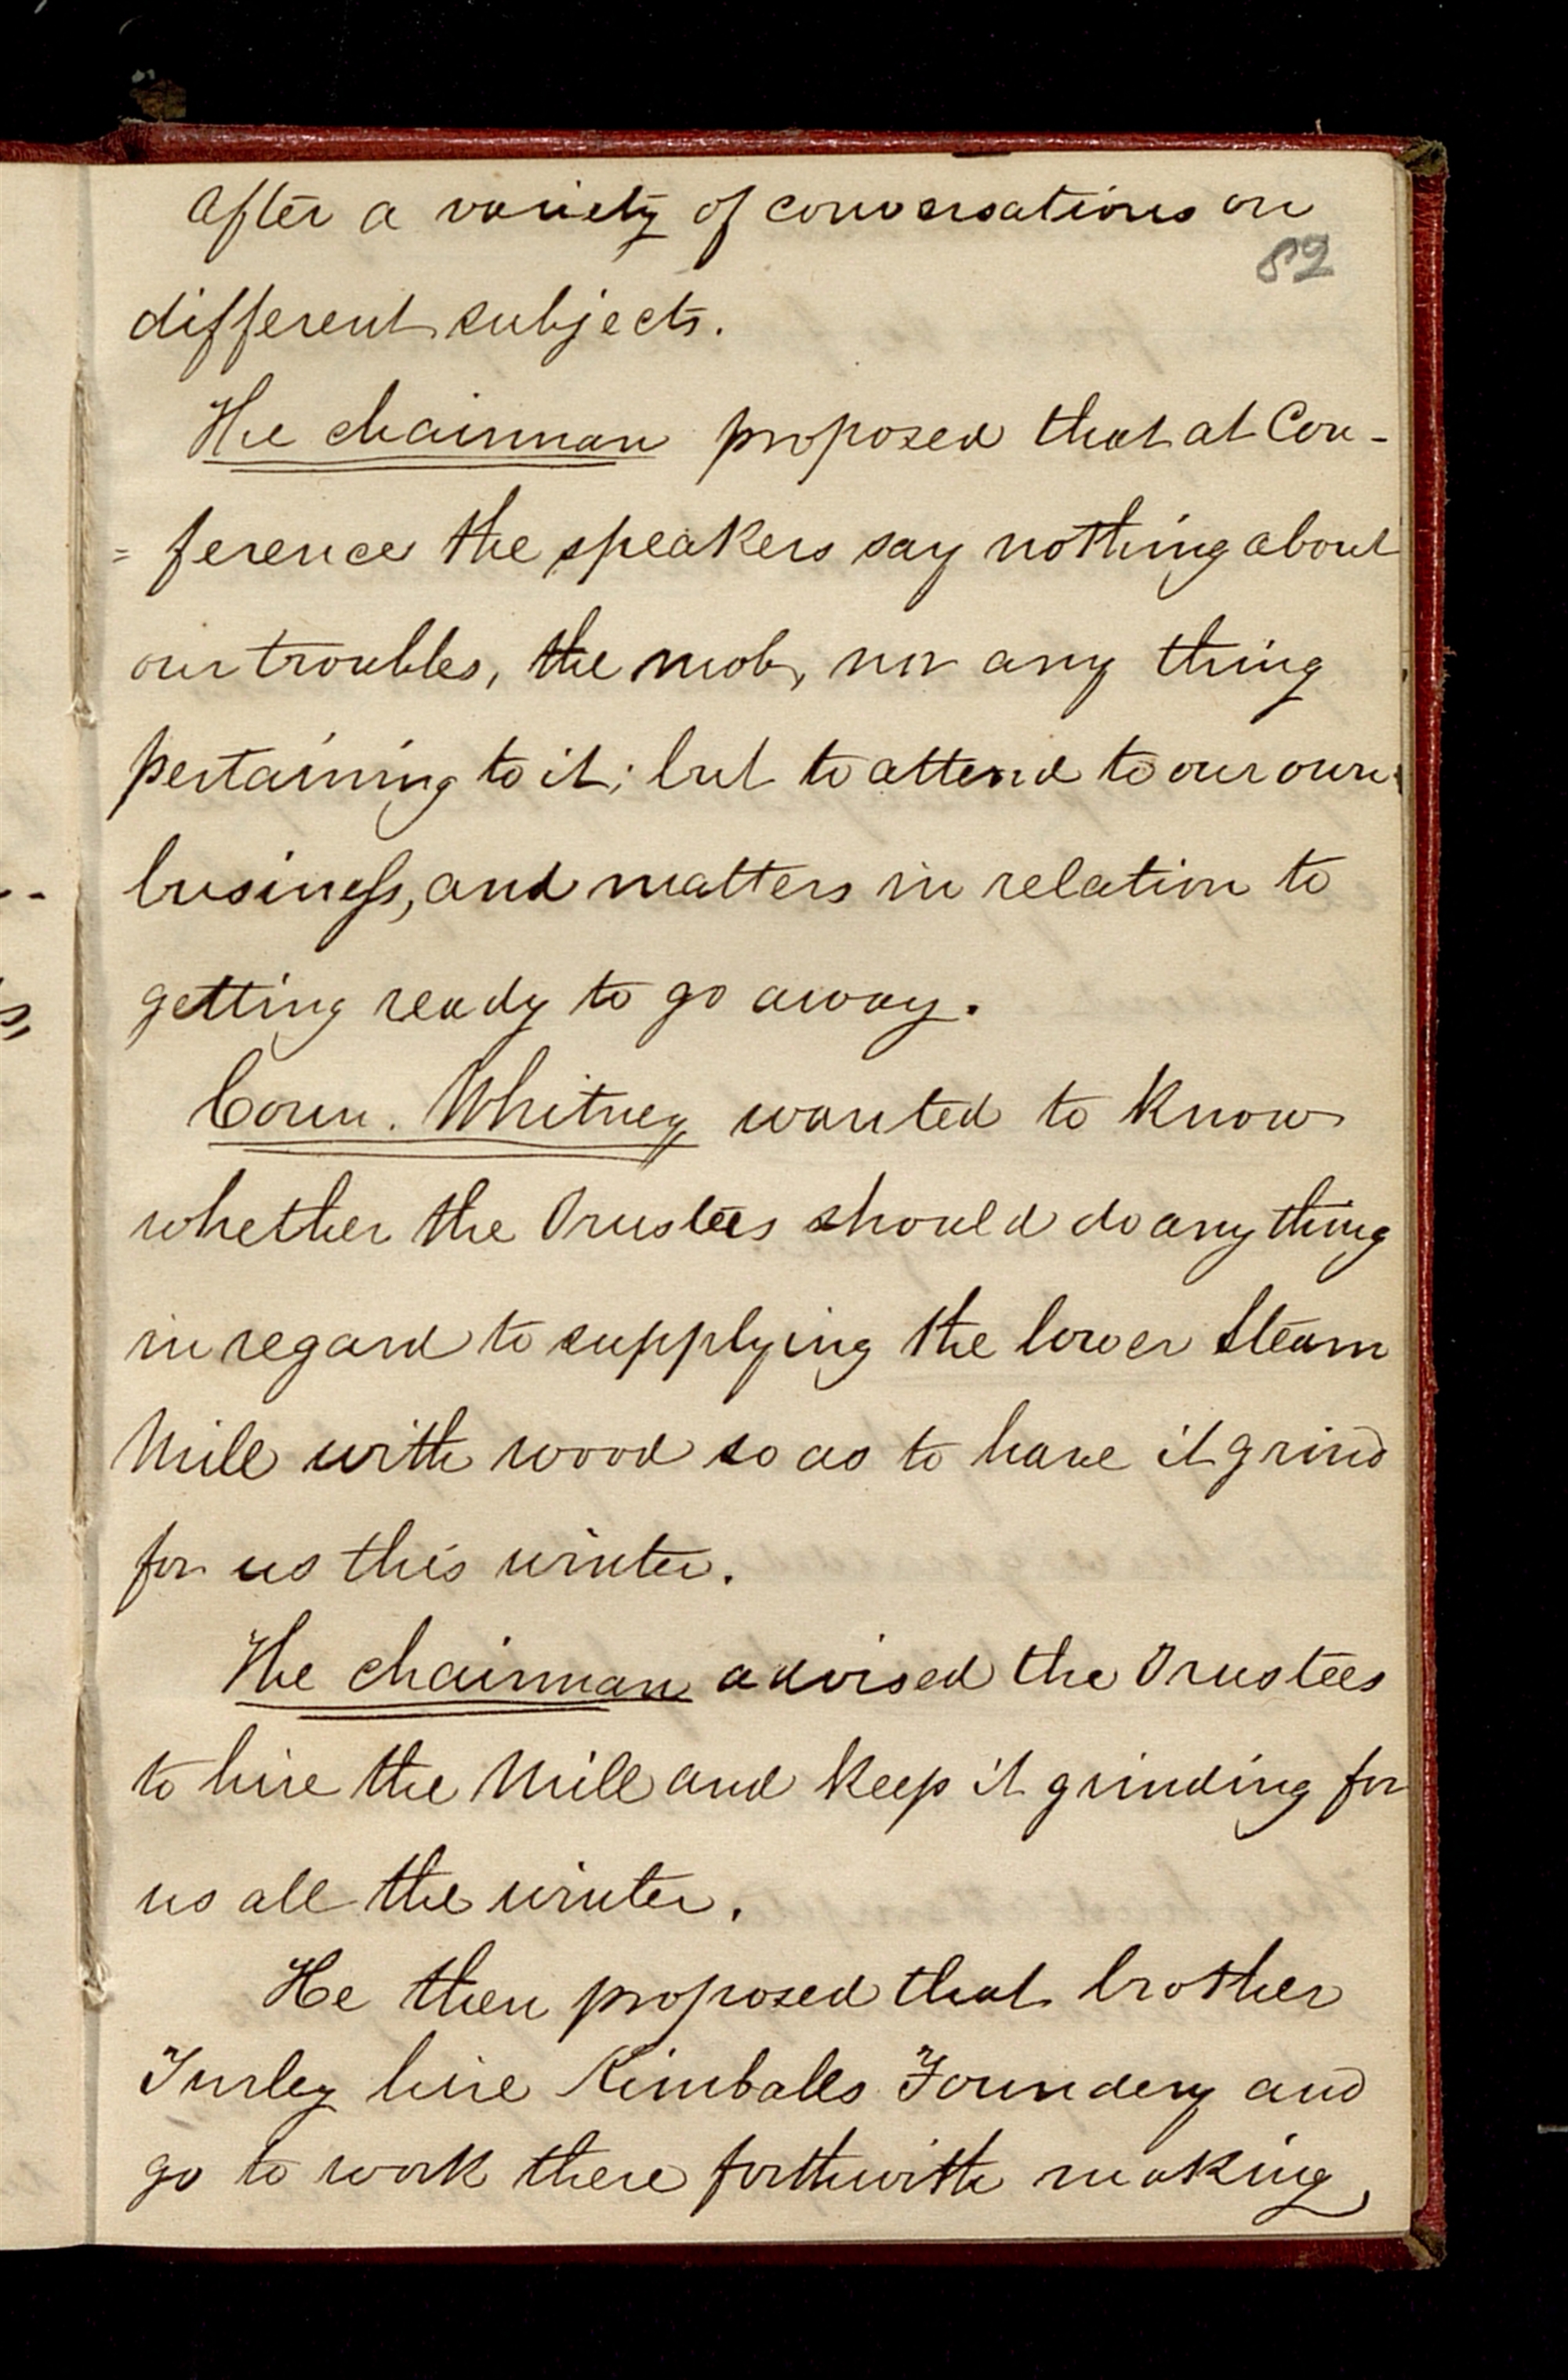 After a variety of conversations on
82
different subjects.
The chairman proposed that at Con-
=ference the speakers say nothing about
our troubles, the mob, nor any thing
pertaining to it; but to attend to our own
business, and matters in relation to
getting ready to go away.
Coun. Whitney wanted to know
whether the Trustees should do any thing
in regard to supplying the lower Steam
Mill with wood so as to have it grind
for us this winter.
The chairman advised the Trustees
to hire the Mill and keep it grinding for
us all the winter.
He then proposed that brother
Turley hire Kimballs Foundery and
go to work there forthwith making